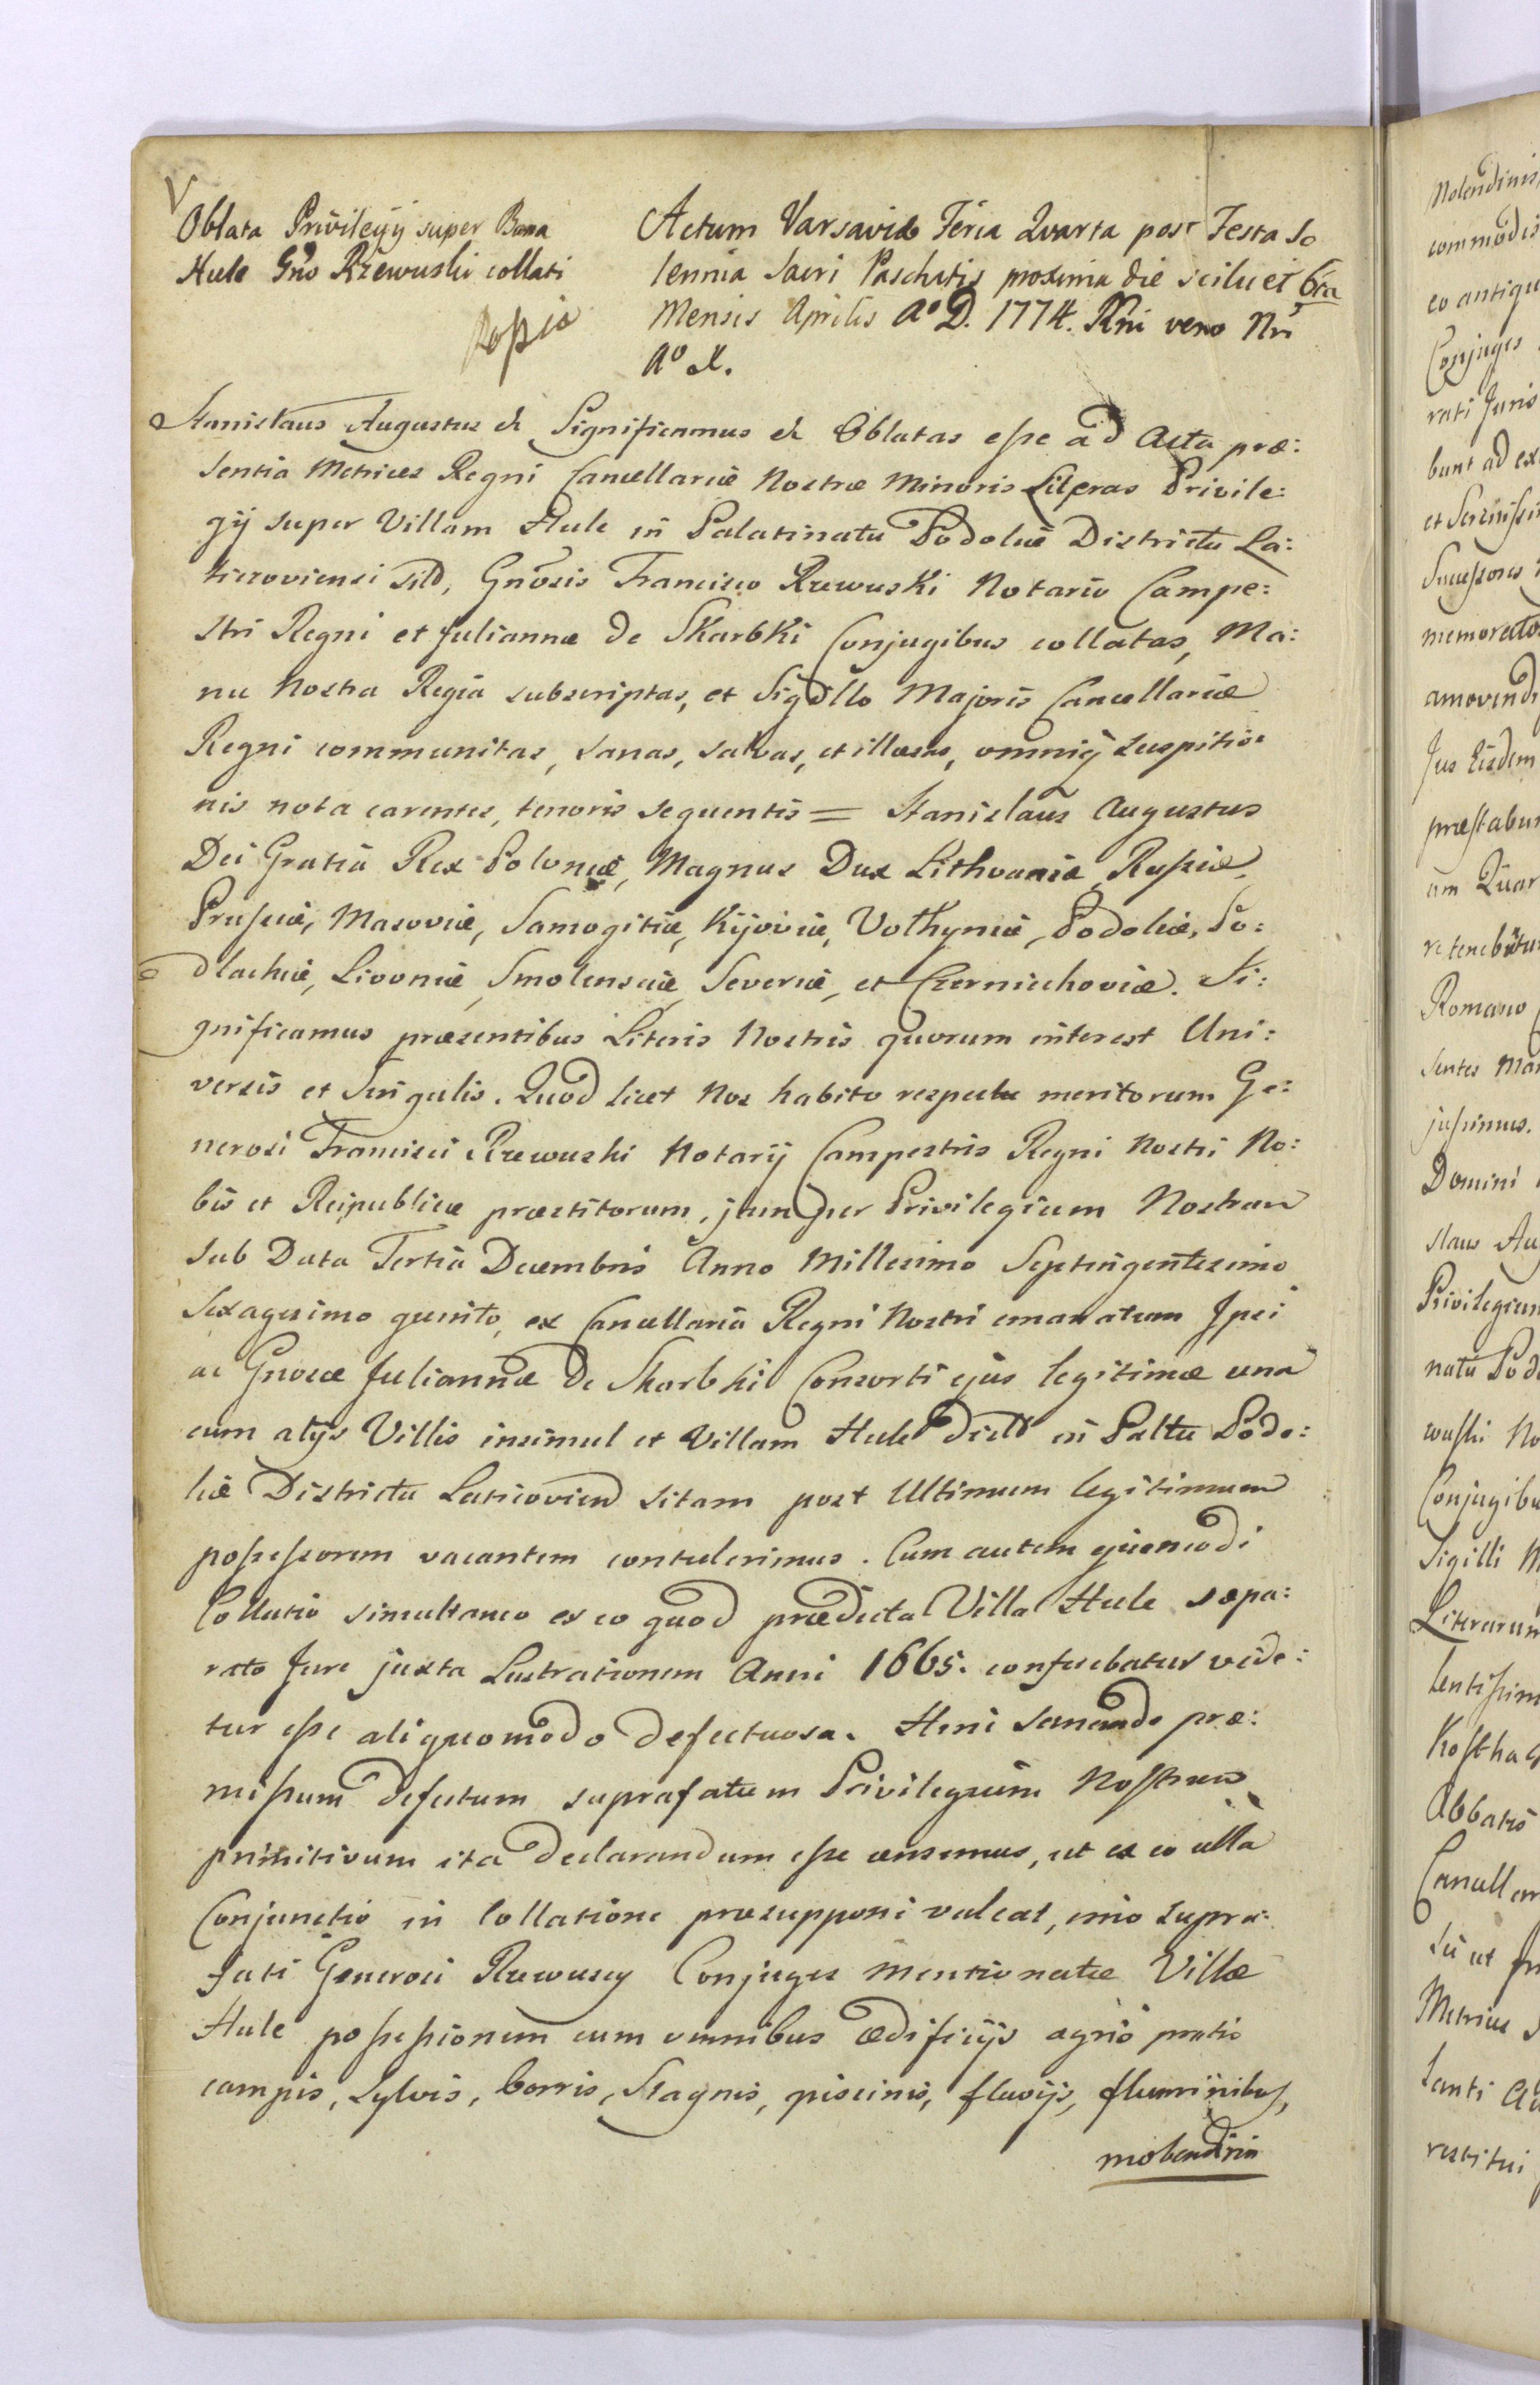 Oblata Privilegij super Bona
Hule Gño Rzewuski collati
Actum Varsaviæ Feria Quarta post Festa So
lennia Sacri Paschatis proxima die scilicet 6ta
Mensis Aprilis Aº D. 1774. Rñi vero Nri
Aº X.
Stanislaus Augustus &c Significamus &c Oblatas esse ad Acta præ:
sentia Metrices Regni Cancellariæ Nostræ Minoris Literas Privile:
gij super Villam Hule in Palatinatu Podoliæ Districtu La:
ticzoviensi sitã, Gnosis Francisco Rzewuski Notario Campe:
stri Regni et Juliannæ de Skarbki Conjugibus collatas, Ma:
nu Nostra Regia subscriptas, et Sigillo Majoris Cancellariæ
Regni communitas, sanas, salvas, et illæsas, omniq̃ suspitio:
nis nota carentes, tenoris sequentis = Stanislaus Augustus
Dei Gratia Rex Poloniæ, Magnus Dux Lithvaniæ, Russiæ,
Prussiæ, Masoviæ, Samogitiæ, Kijoviæ, Volhyniæ, Podoliæ, Po:
dlachiæ, Livoniæ, Smolensciæ, Severiæ, et Czerniechoviæ. Si:
gnificamus præsentibus Literis Nostris quorum interest Uni:
versis et Singulis. Quod licet Nos habito respectu meritorum Ge:
nerosi Francisci Rzewuski Notarij Campestris Regni Nostri No:
bis et Reipublicæ præstitorum, jam per Privilegium Nostrum
sub Data Tertia Decembris Anno Millesimo Septingentesimo
Sexagesimo quinto, ex Cancellaria Regni Nostri emanatum Ipsi
ac Gnosæ Juliannæ De Skarbki Consorti ejus legitimæ una
cum alijs Villis insimul et Villam Hule dictã in Paltu Podo:
liæ Districtu Laticoviens sitam post Ultimum legitimum
possessorem vacantem contulerimus. Cum autem ejusmodi
Collatio simultaneo ex eo quod prædicta Villa Hule sepa:
rato Jure juxta Lustrationem Anni 1665. conferebatur vide:
tur esse aliquomodo defectuosa. Hinc sanando præ:
missum defectum suprafatum Privilegium Nostrum
primitivum ita declarandum esse censemus, ut ex eo ulla
Conjunctio in Collatione præsupponi valeat, imo supra:
fati Generosi Rzewuscy Conjuges mentionatæ Villæ
Hule possessionem cum omnibus ædificijs agris pratis
campis, sylvis, borris, Stagnis, piscinis, fluvijs, fluminibus,
molendinis
Molendinis,
commodis
eo antiqu
Conjuges
rati Juris
bunt ad ex
et Serenissi
Successores
memorato
amovendi
Jus Eisdem
præstabun
um Quar
re tenebütur
Romano
sentes Man
jussimus.
Domini
slaus Au
Privilegium
natu Podo
wuski No
Conjugibu
Sigilli M
Literarum
lentissim
Kostka
Abbatis
Cancellar
Metrices
restitui